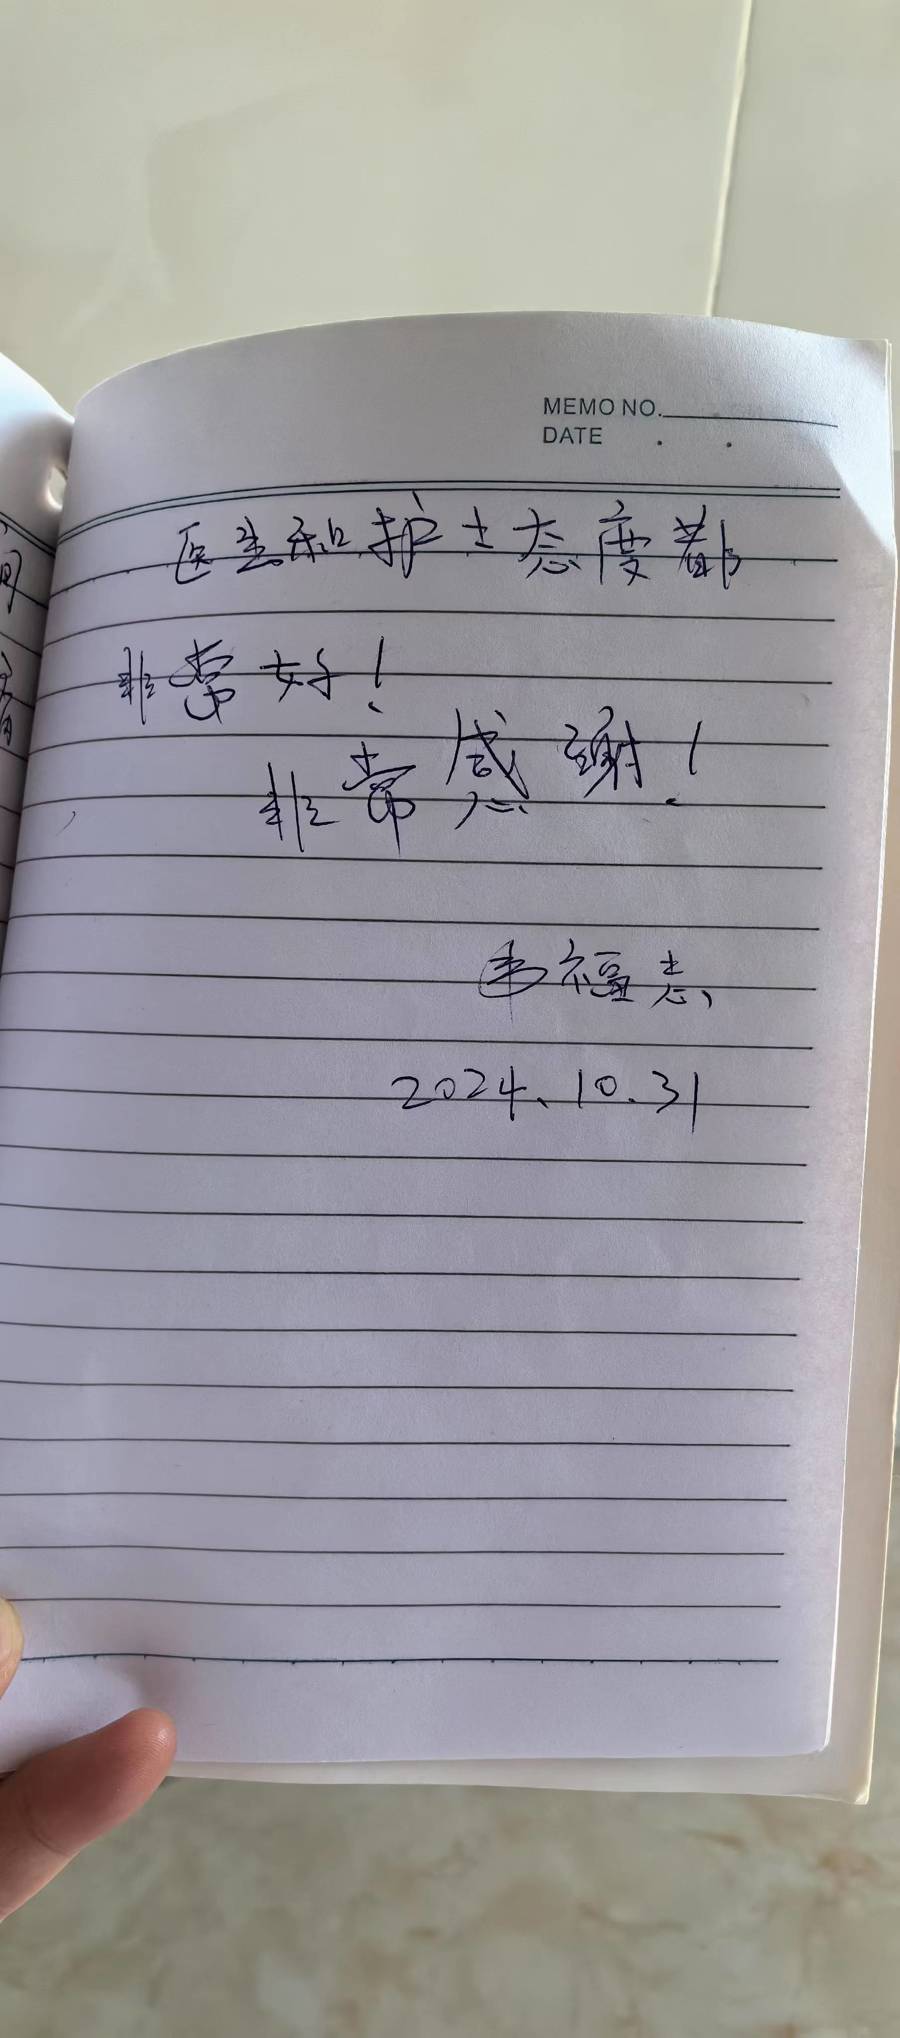 MEMO NO.
DATE . .
医生和护士态度都
非常好！
非常感谢！
韦福志
2024.10.31